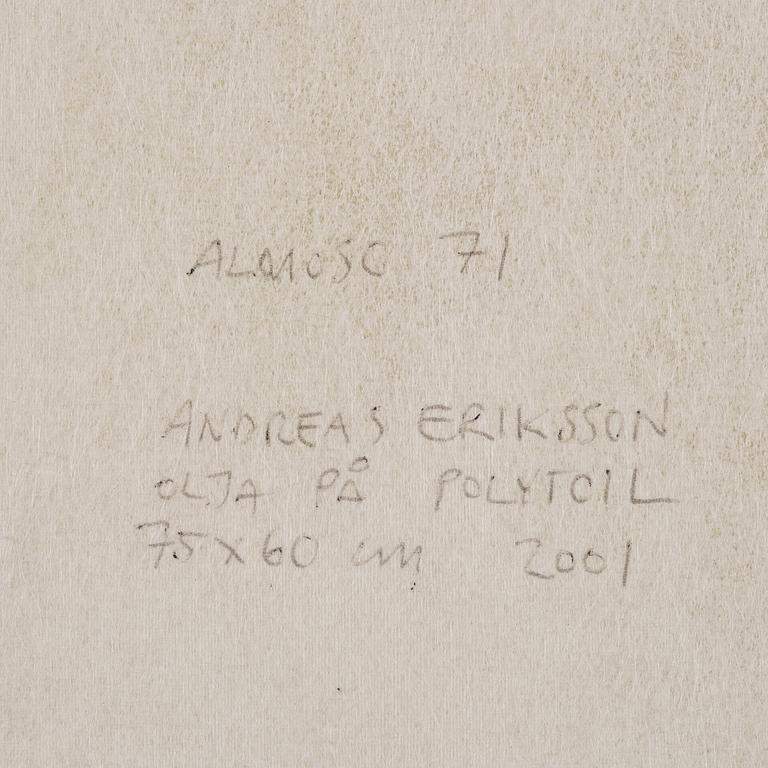 ALMOSO 71
ANDREAS ERIKSSON
OLJA PÅ POLYTOIL
75x60 cm 2001